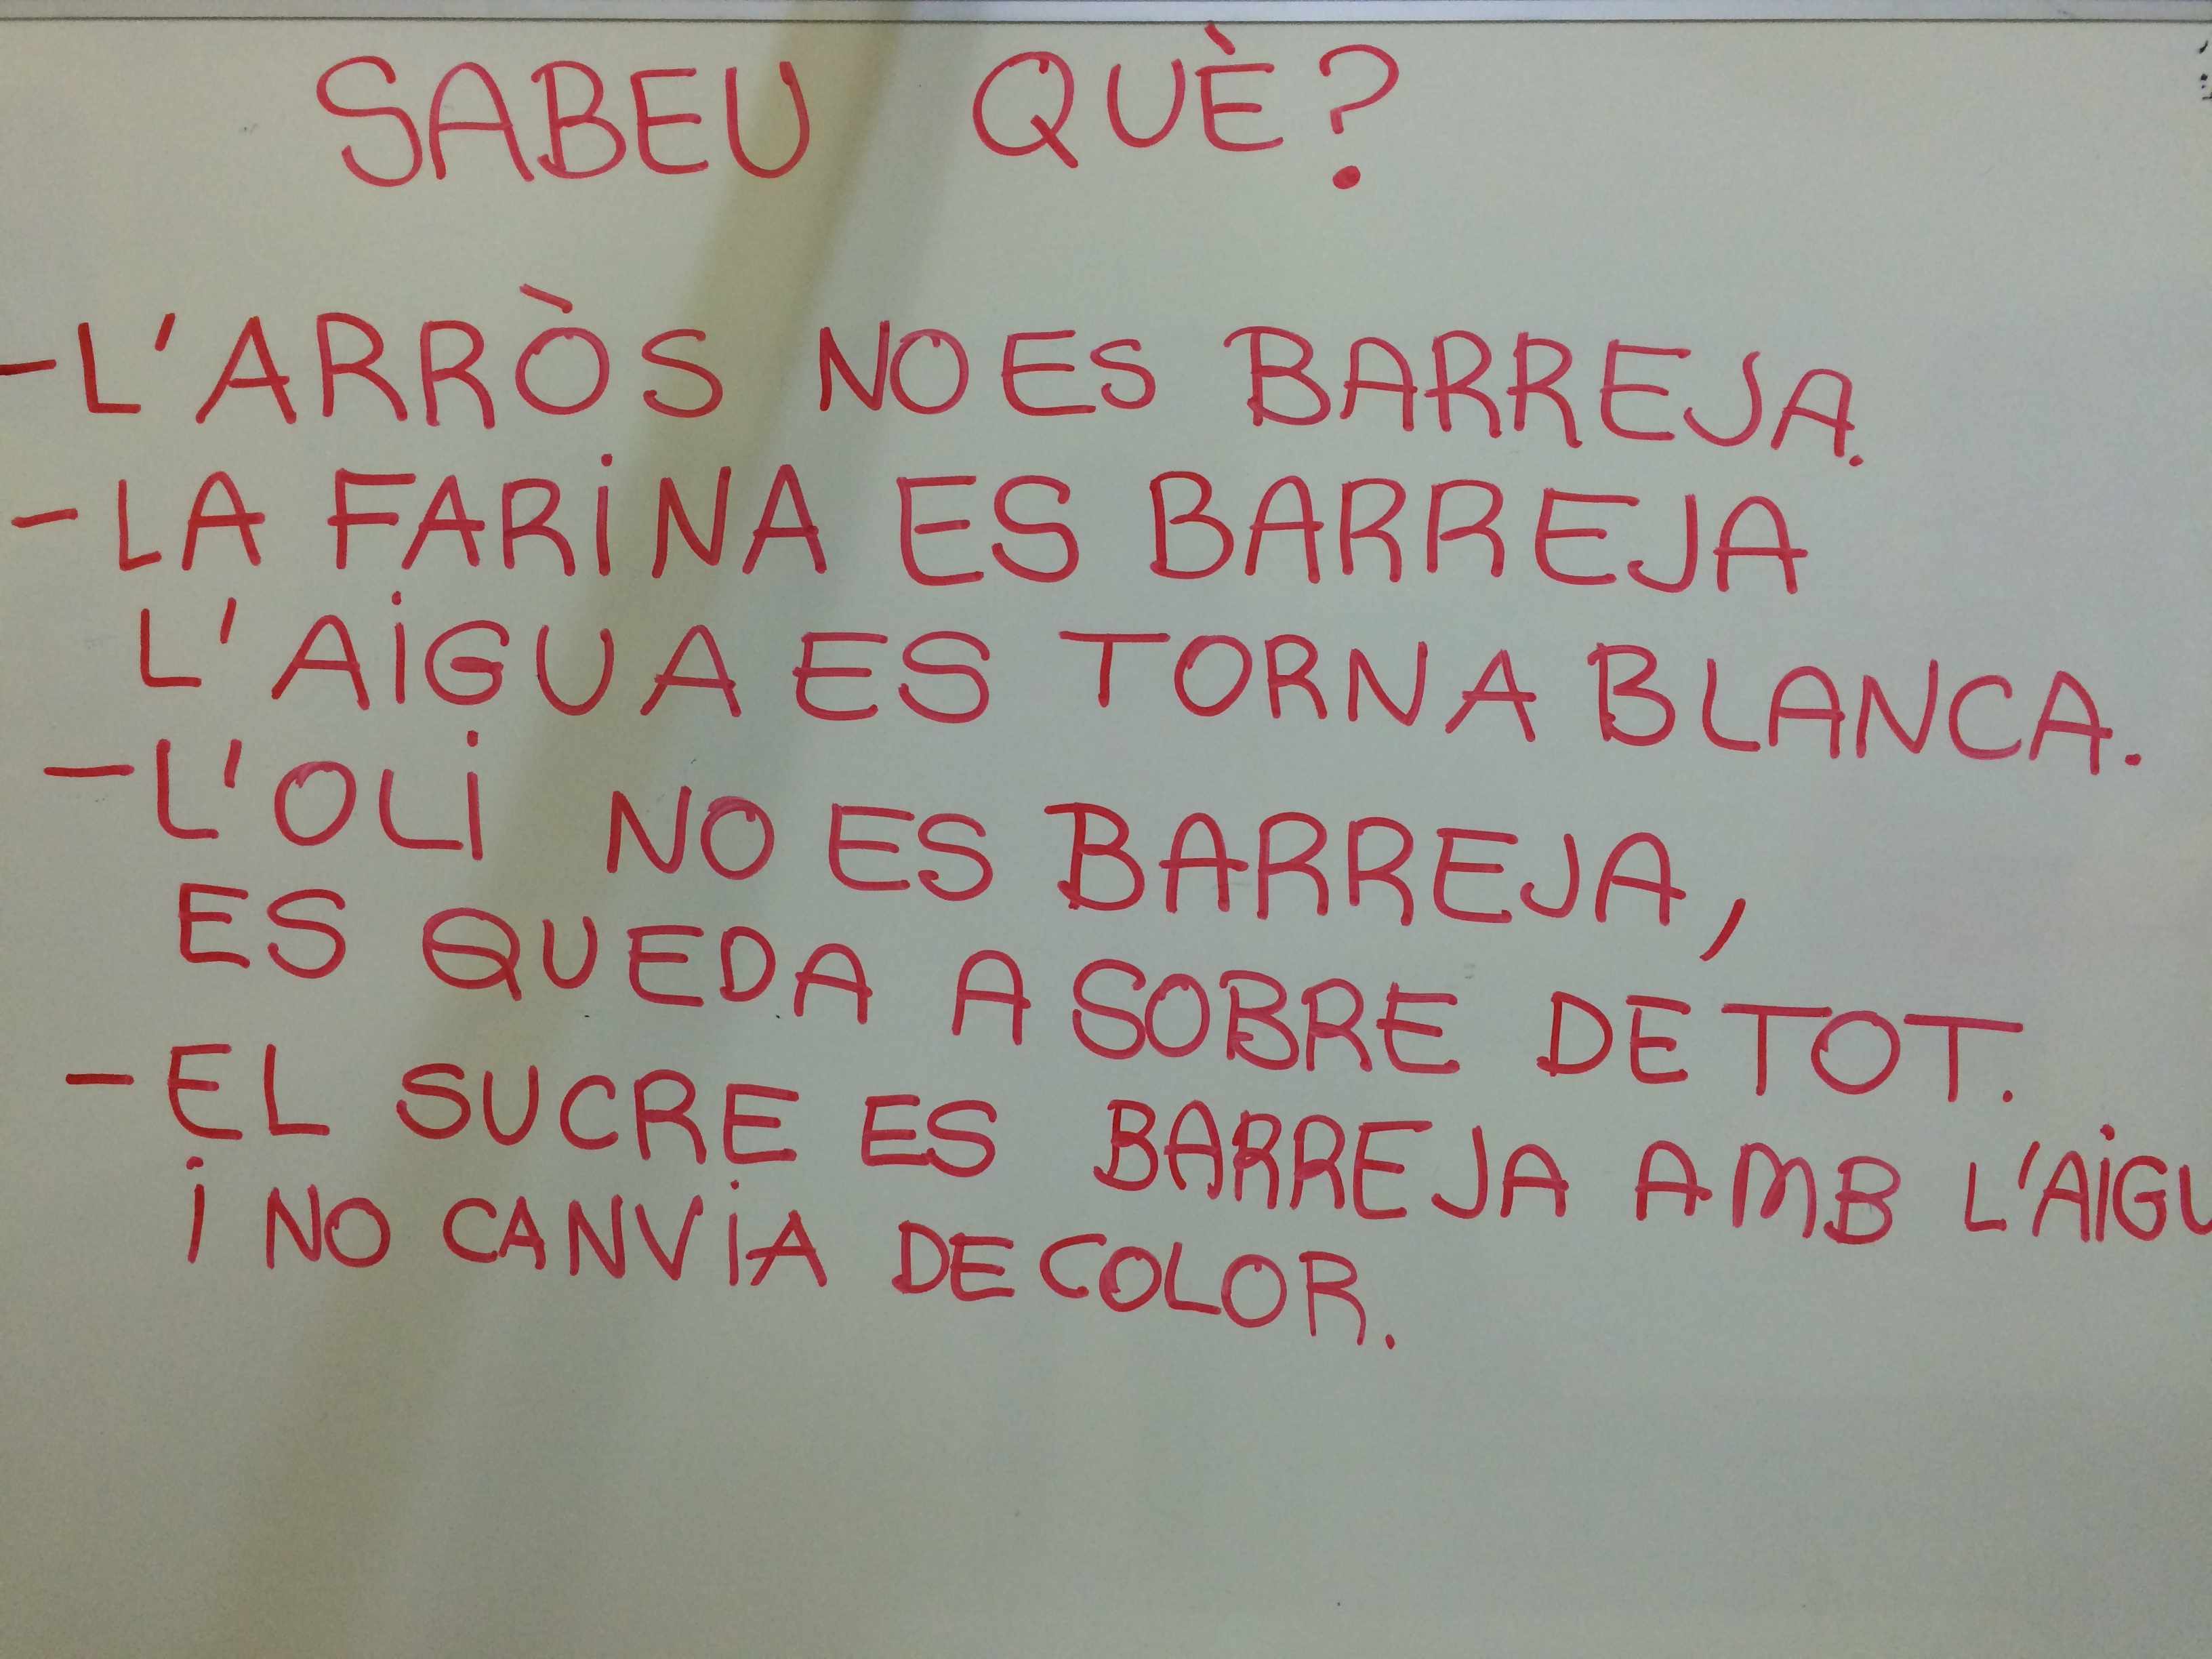 SABEU QUÈ?
-L'ARRÒS NO ES BARREJA.
-LA FARINA ES BARREJA
L'AIGUA ES TORNA BLANCA.
-L'OLI NO ES BARREJA,
ES QUEDA A SOBRE DE TOT.
-EL SUCRE ES BARREJA AMB L'AIGU
I NO CANVIA DE COLOR.